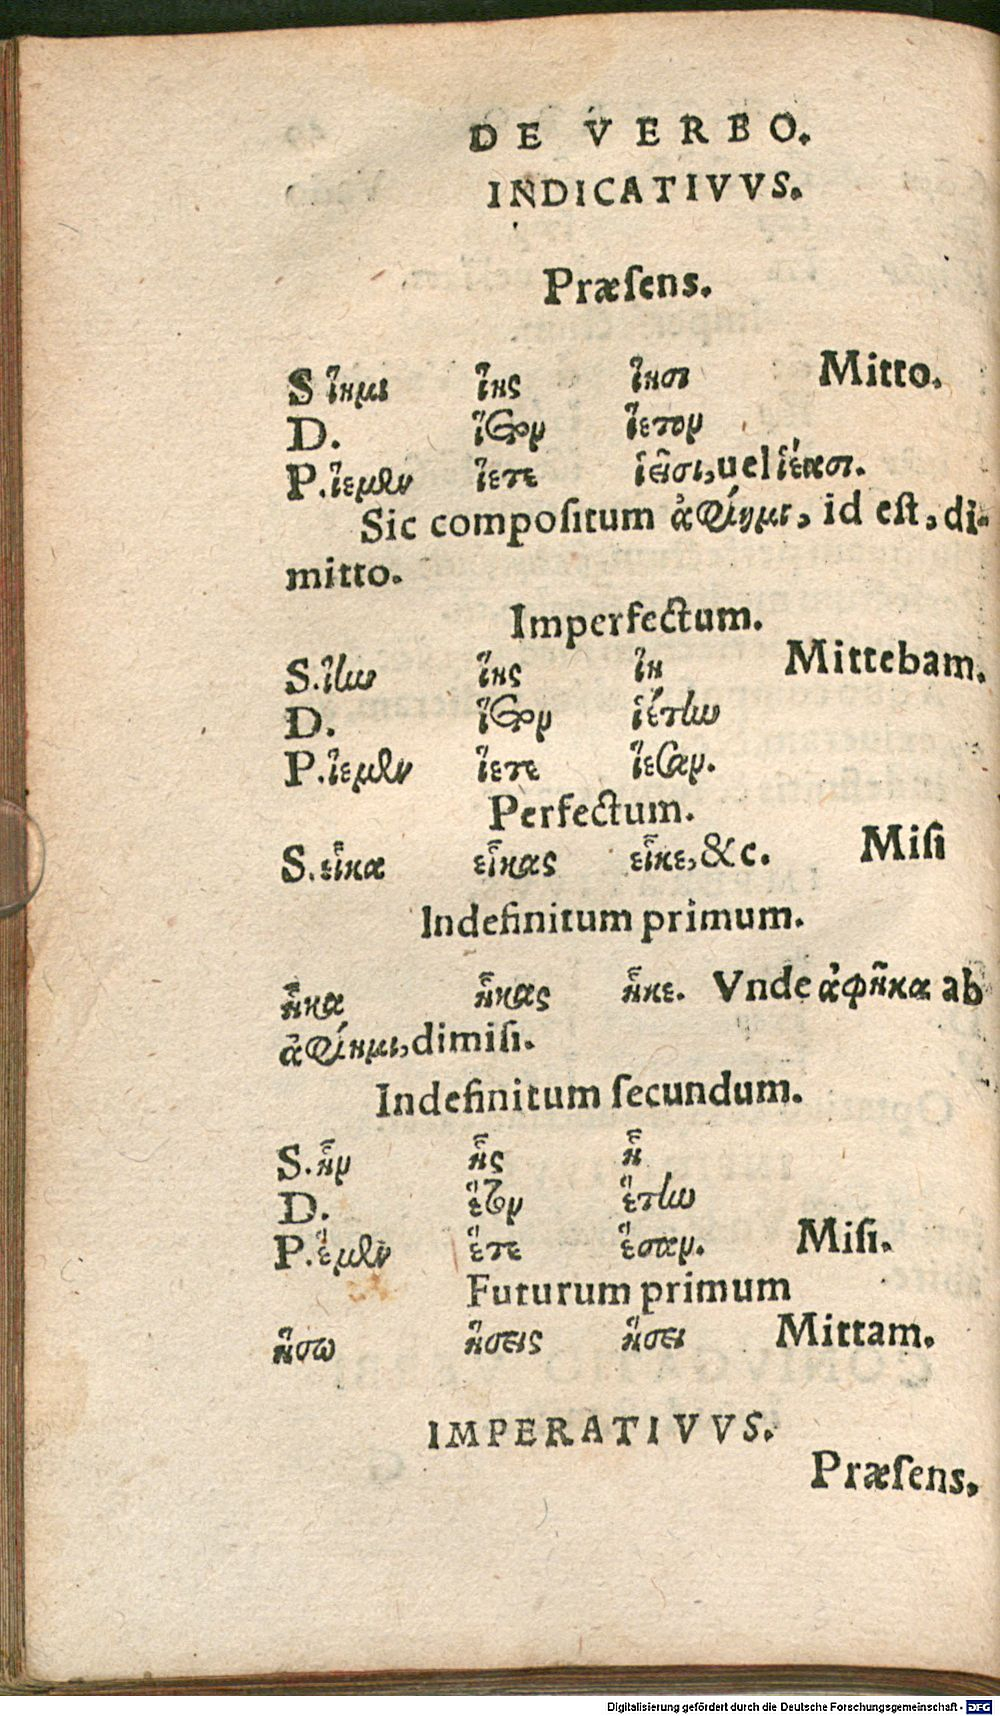 DE VERBO.
INDICATIVVS.
Præſens.
S ἵημι ἵης ἵησι Mitto.
D. ἵετον ἵετον
P. ἵεμεν ἵετε ἱεῖσι, uel ἱέασι.
Sic compoſitum ἀφίημι, id eſt, di-
mitto.
Imperfectum.
S. ἵην ἵης ἵη Mittebam.
D. ἵετον ἱέτην
P. ἵεμεν ἵετε ἵεσαν.
Perfectum.
S. εἶκα εἶκας εἶκε, &c. Miſi
Indefinitum primum.
ἧκα ἧκας ἧκε. Vnde ἀφῆκα ab
ἀφίημι, dimiſi.
Indefinitum ſecundum.
S. ἧν ἧς ἧ
D. ἕτον ἕτην
P. ἕμεν ἕτε ἕσαν. Miſi.
Futurum primum
ἥσω ἥσεις ἥσει Mittam.
IMPERATIVVS.
Præſens.
Digitalisierung gefördert durch die Deutsche Forschungsgemeinschaft - DFG